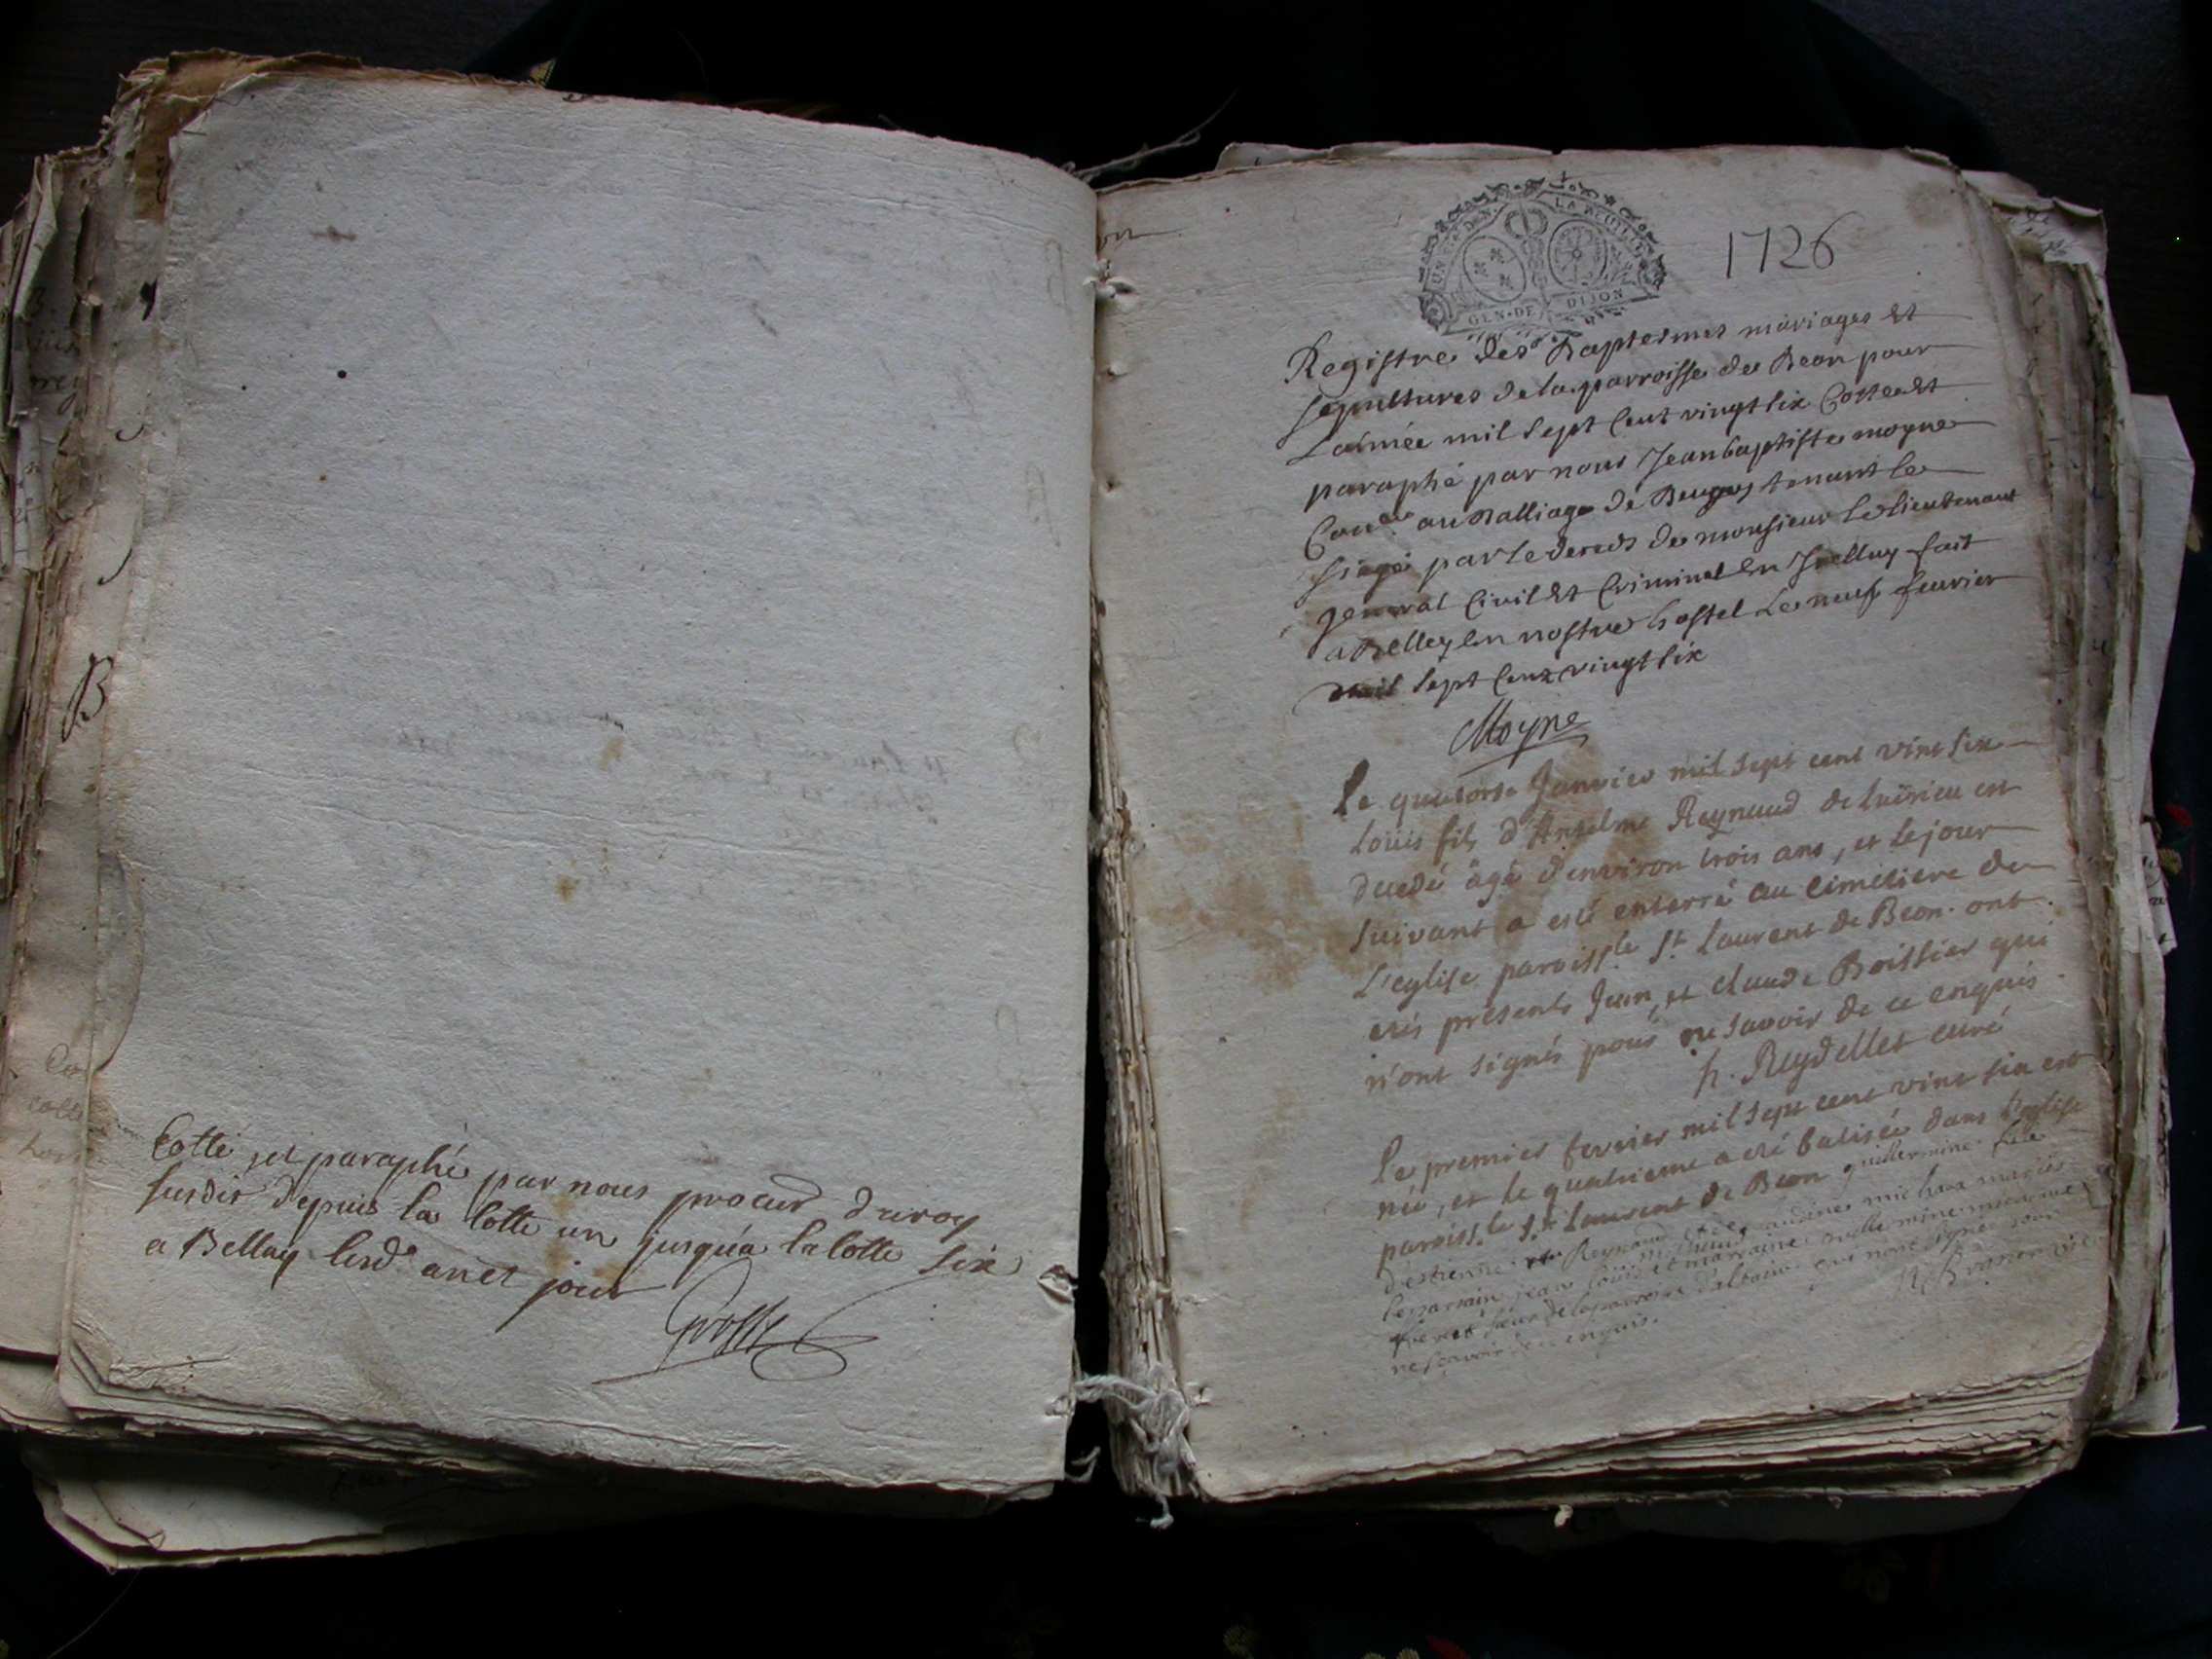 Cotté et paraphé par nous procur du roy
susdit depuis la cotte un jusqu'a la cotte six
a Belley lesd an et jour
UN S. DEN. LA FEUILLE
GEN. DE DIJON
1726
Registre des Baptesmes mariages et
sepultures de la parroisse de Beon pour
L'année mil sept cent vingt six Cotté et
paraphé par nous Jean baptiste moyne
Conser au Balliage de Bugey tenant le
siege par le deceds de monsieur le lieutenant
general Civil et Criminel en Jcelluy fait
a Belley en nostre hostel Le neuf feuvrier
mil sept cent vingt six
Moyne
Le quatorse Janvier mil sept cent vint six
Loüis fils d'Anselme Reynaud de Luirieu est
decedé âgé d'environ trois ans, et le jour
suivant a esté enterré au cimetiere de
L'eglise paroissle St Laurent de Beon. ont
etés présents Jean, et claude Boissier qui
n'ont signés pour ne savoir de ce enquis.
h. Reydellet curé
Le premier fevrier mil sept cent vint six est
née, et le quatrieme a eté batisée dans l'eglise
paroissle St Laurent de Beon guillermine fille
d'estienne Reynaud et de michaud mariés
le parrain jean Loüis et marraine guillermine
frere et sœur de la paroisse qui n'ont signé pour
ne sçavoir de ce enquis.